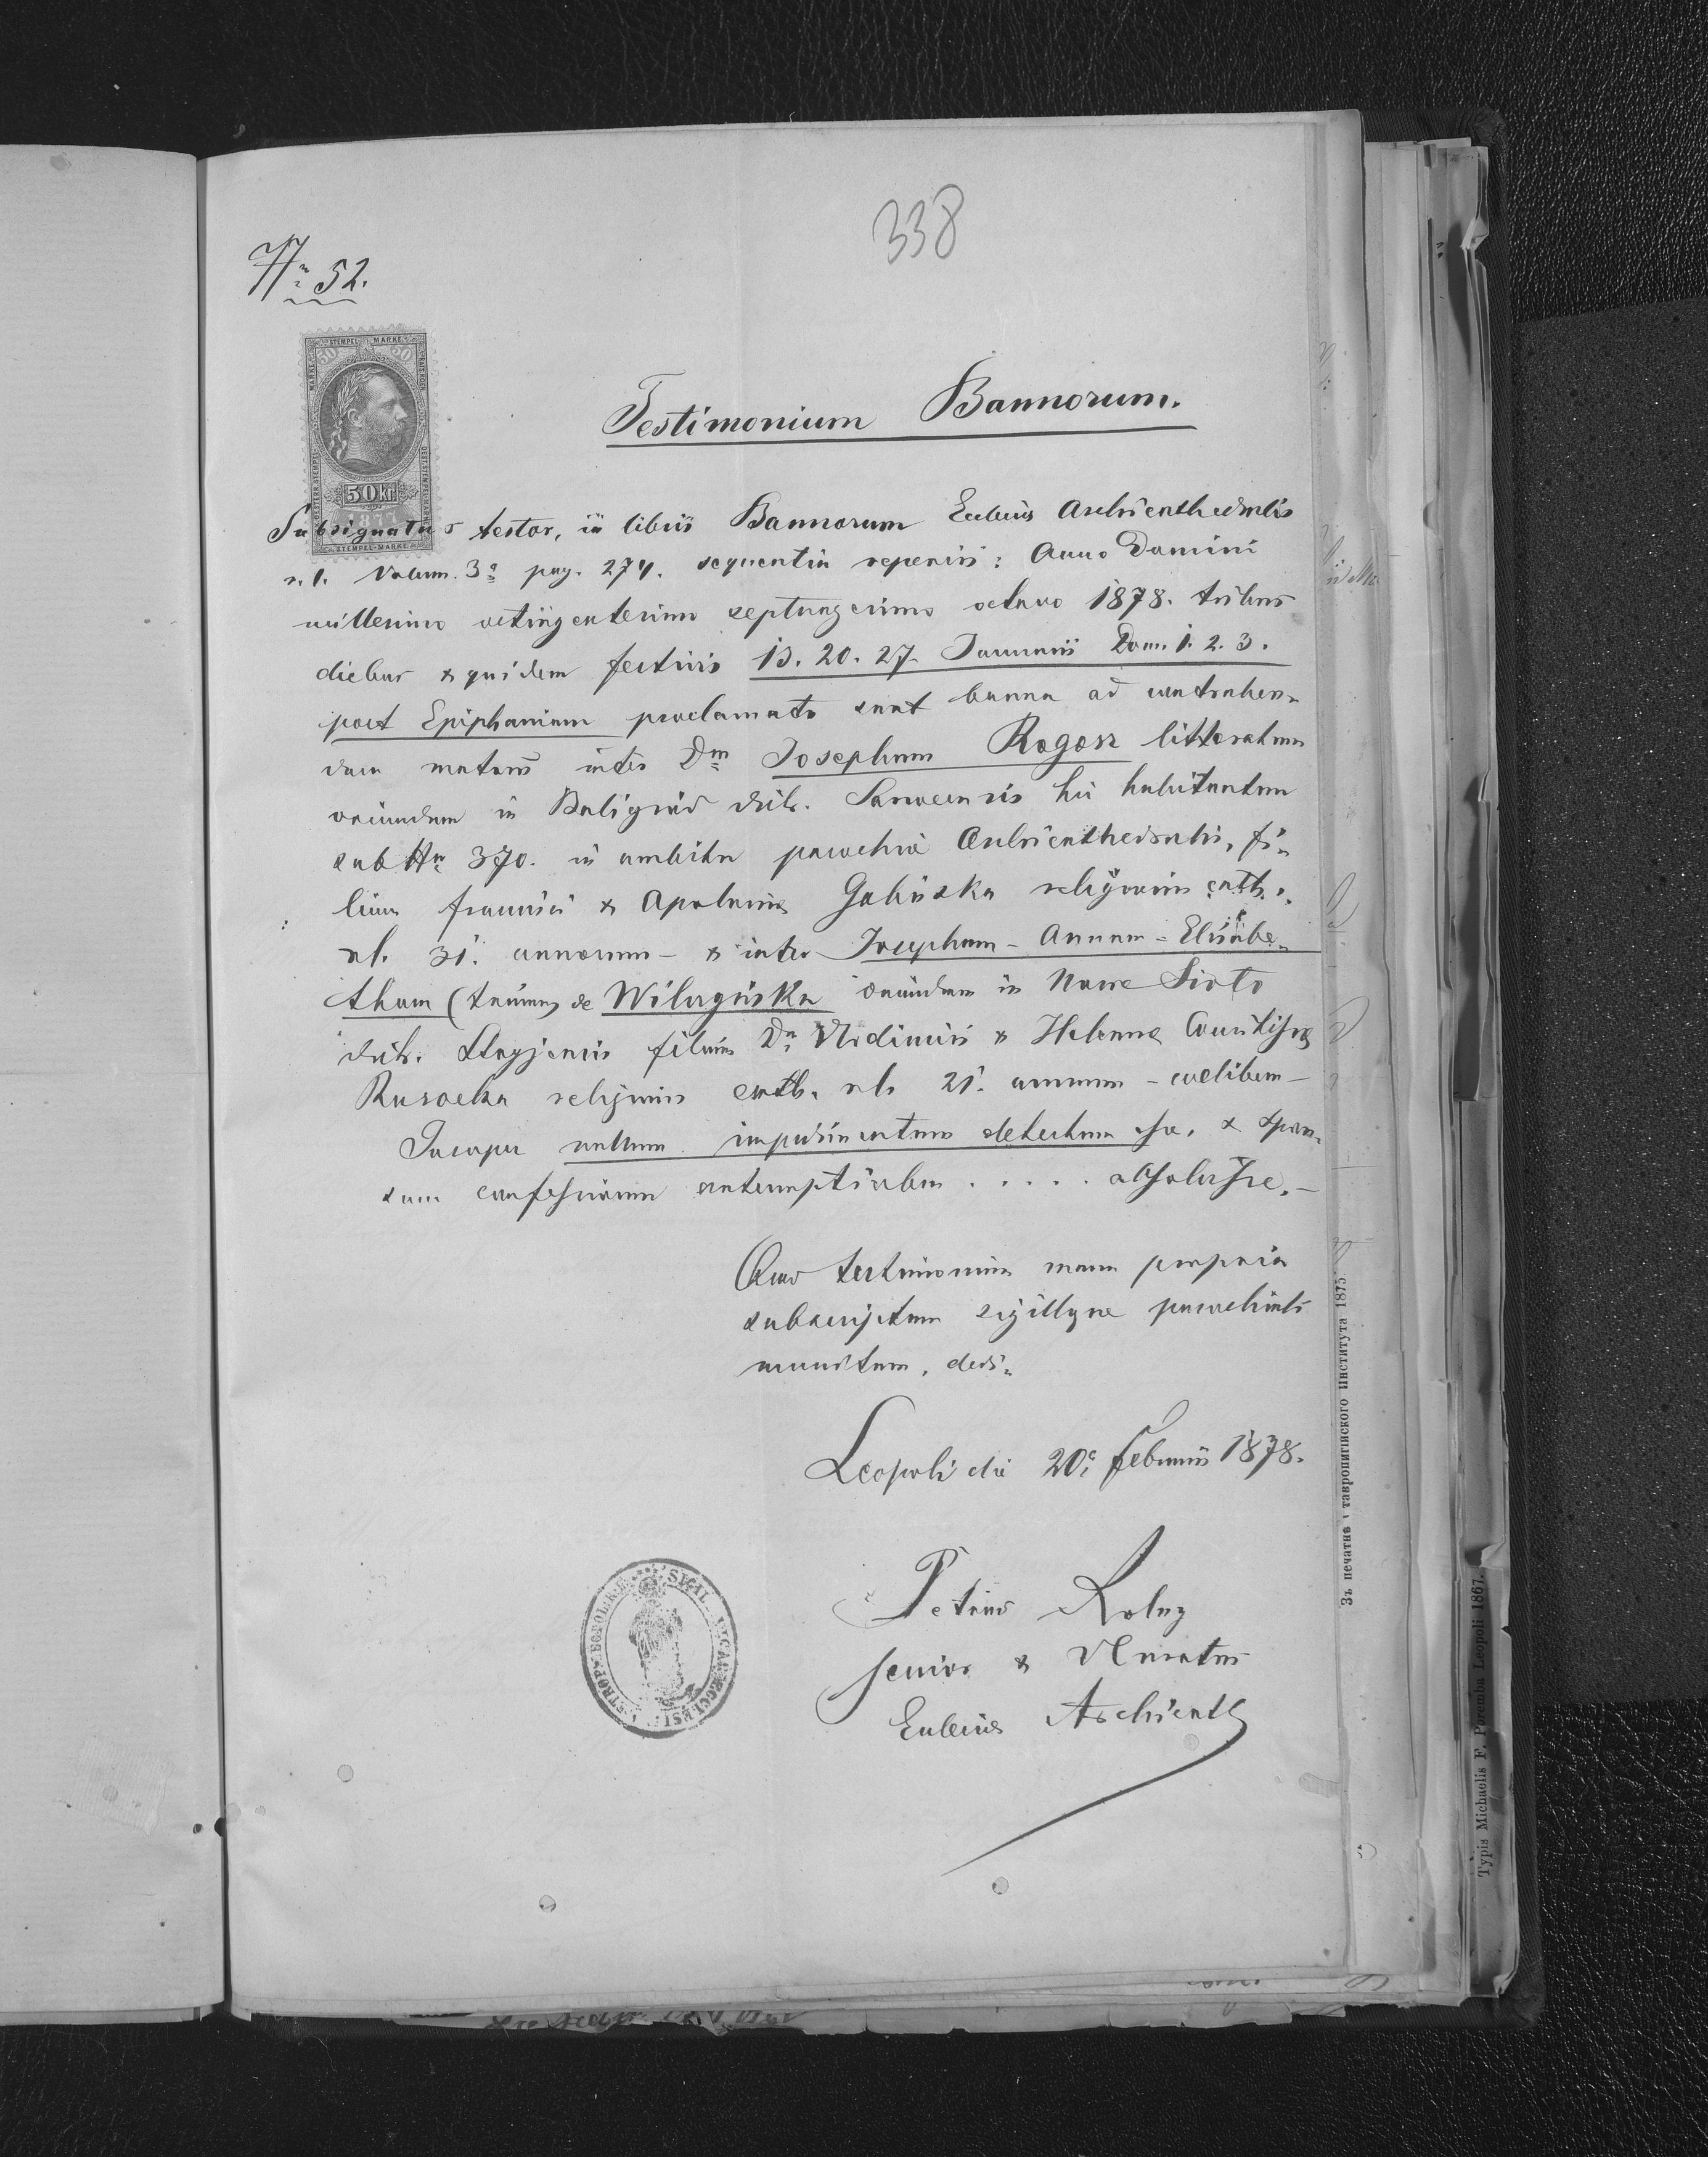 338
Nr. 52.
STEMPEL MARKE
50 kr
STEMPEL-MARKE
Testimonium Bannorum.
Subsignatus testor, in libris Bannorum Ecclesiae Archicathedralis
r. l. Volum. 3o pag. 274. sequentia reperiri: Anno Domini
millesimo octingentesimo septuagesimo octavo 1878. tribus
diebus & quidem festivis 13. 20. 27. Januarii Dom. 1. 2. 3.
post Epiphaniam proclamata sunt banna ad contrahen-
dum matrim. inter Dm Josephum Rogosz litteratum
oriundum in Baligrod distr. Sanocensis hic habitantem
sub Nr 370. in ambitu parochiae Archicathedralis, fi-
lium Francisci & Apoloniae Galinska religionis cath.
31. annorum - & inter Josepham - Annam - Elisabe-
tham (trium) de Wilczyńska oriundam in Nowe Sioło
distr. Stryjensis filiam Dn Vladimiri & Helenae Comitissae
Russocka religionis cath. 21. annorum - coelibem -
Insuper nullum impedimentum detectum esse, & spon-
sum confessionem antenuptialem ..... absolvisse. -
Quod testimonium manu propria
subscriptum sigilloque parochiali
munitum, dedi.
Leopoli die 20a Februarii 1878.
Petrus Kolny
senior &
Ecclesiae Archicath
SIGIL
ECCLESI
Зъ печатнѣ тавропигійского Института 1875.
Typis Michaelis F. Poremba Leopoli 1867.